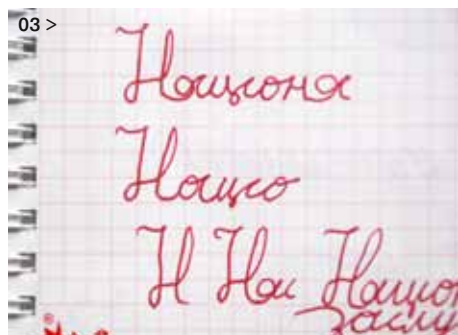 03 >
Национа
Нацио
Н На Нацио
Заслу